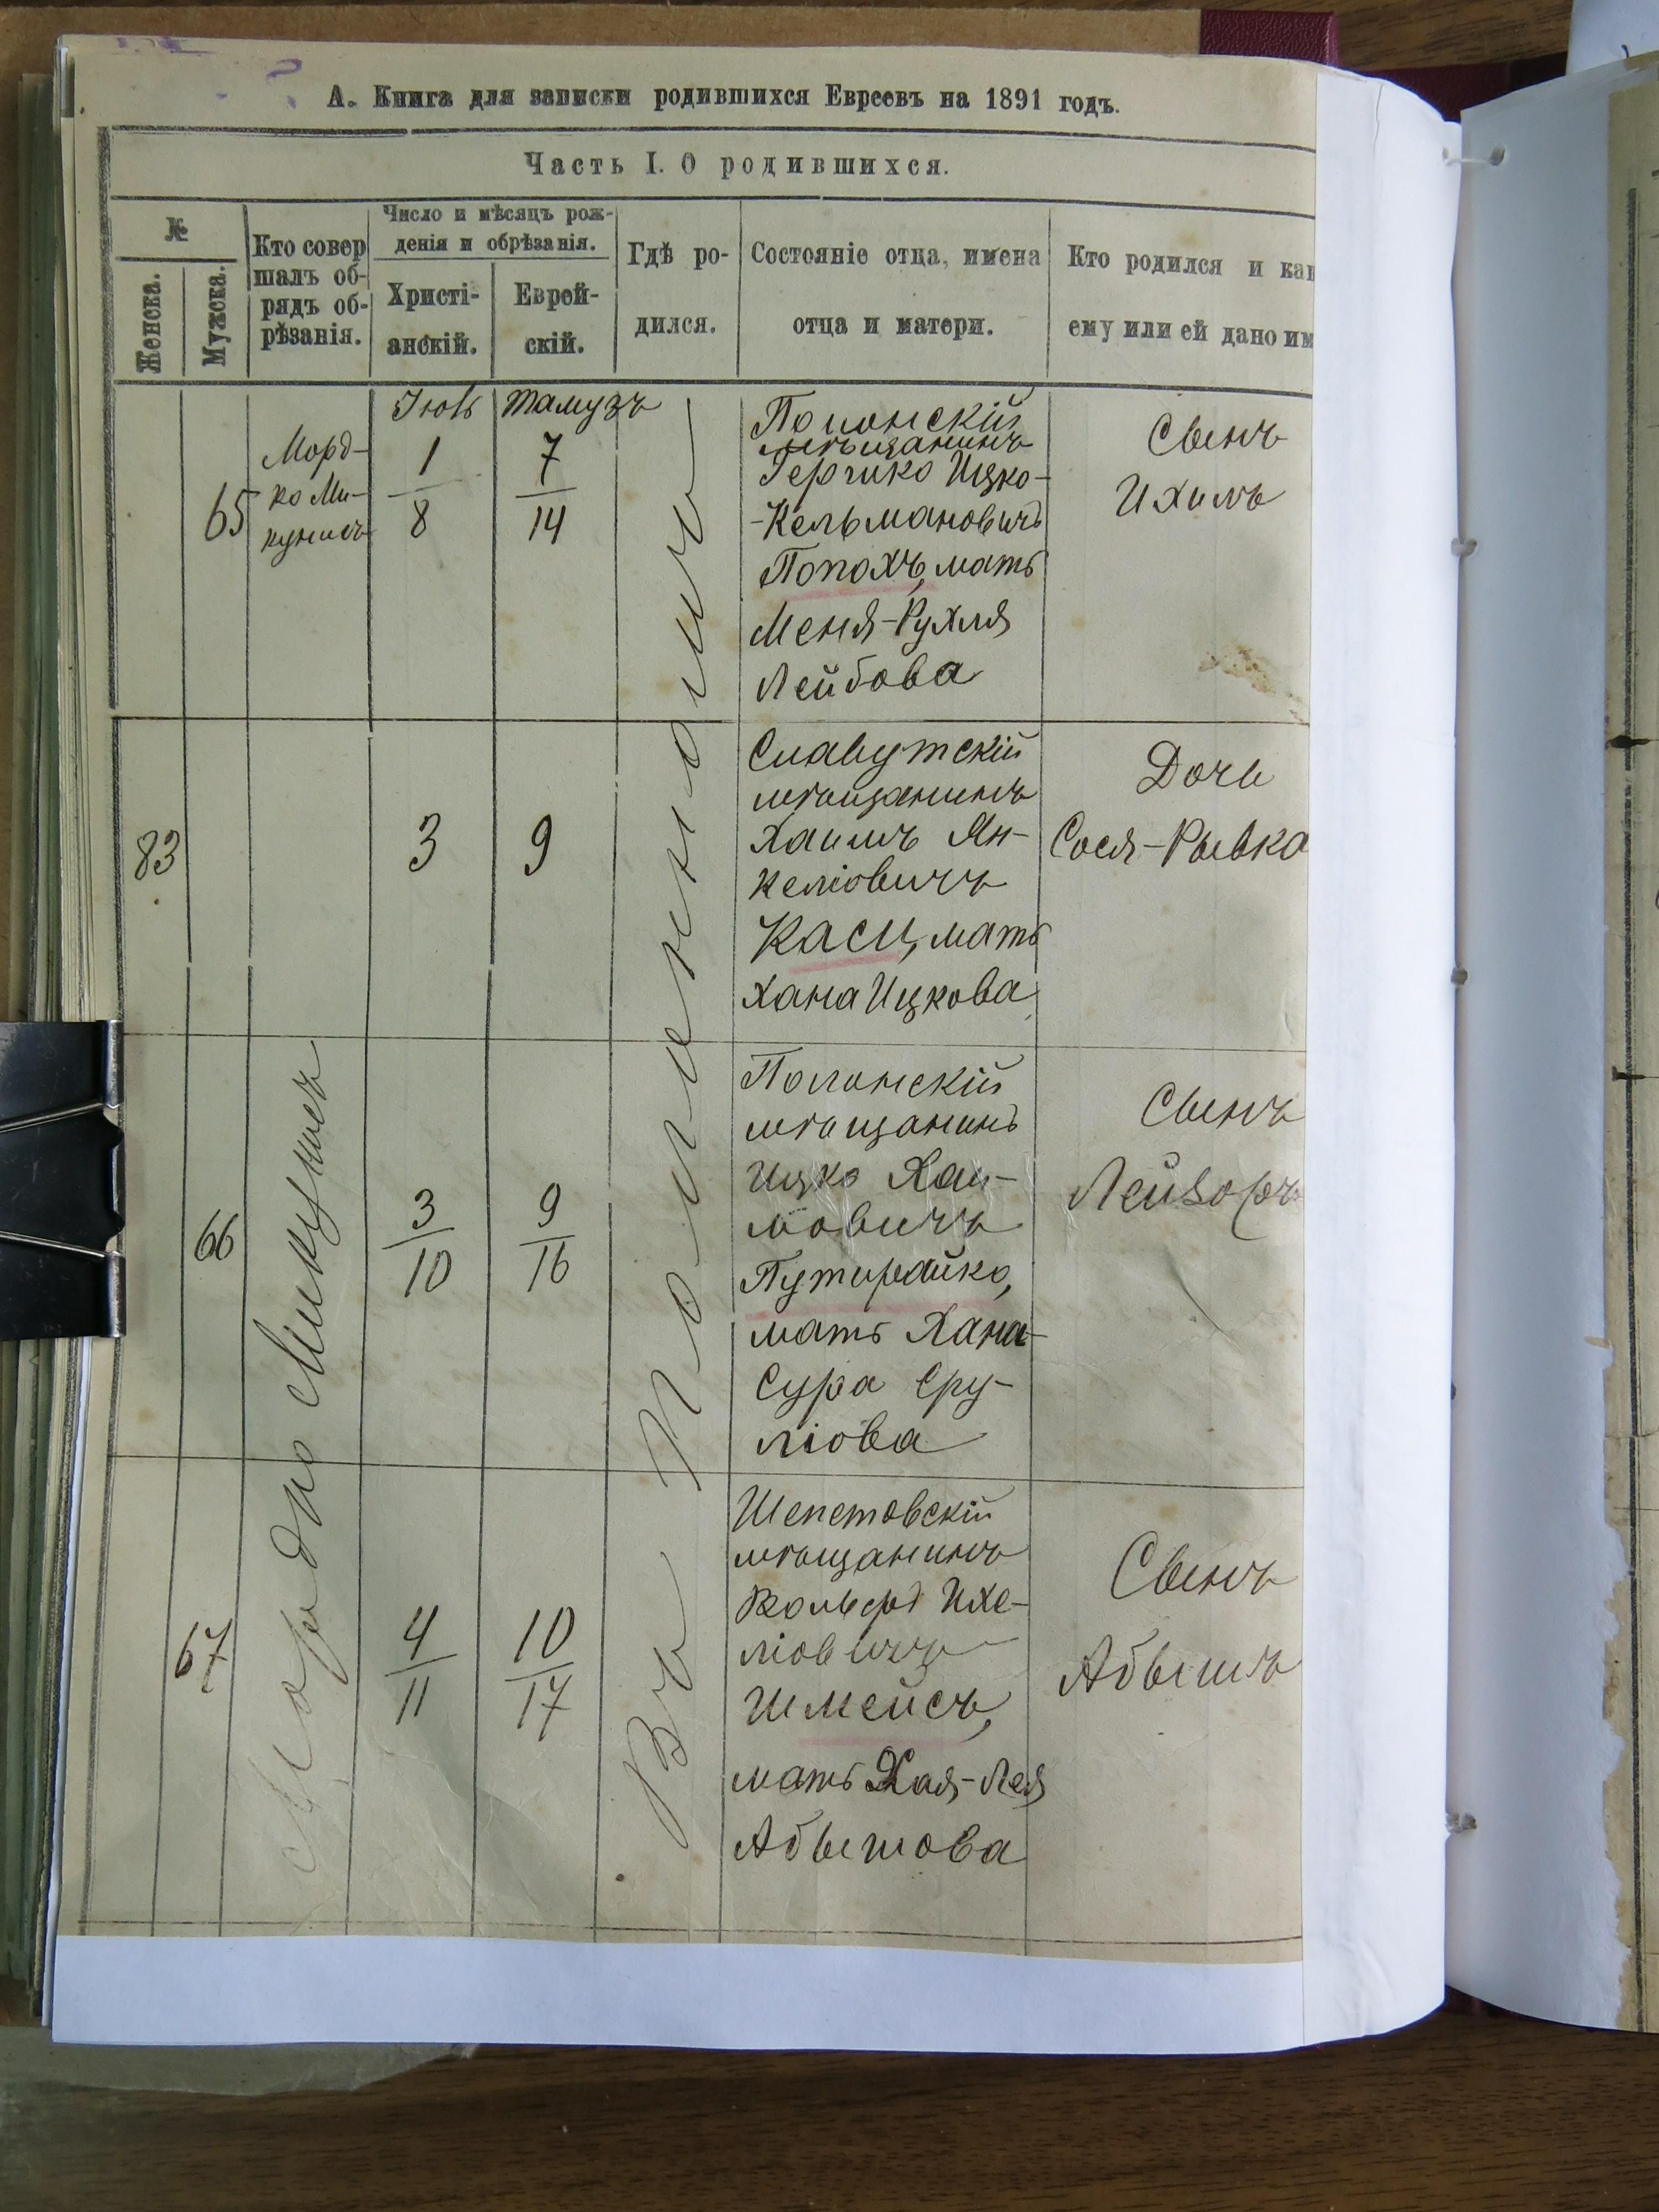 А. Книга для записки родившихся Евреевъ на 1891 годъ.
Часть I. О родившихся.
№
Женска.
Мужска.
Кто совер
шалъ об-
рядъ об-
рѣзанія.
Число и мѣсяцъ рож-
денія и обрѣзанія.
Христі-
анскій.
Еврей-
скій.
Гдѣ ро-
дился.
Состояніе отца, имена
отца и матери.
Кто родился и ка
ему или ей дано им
65
Морд-
ко Ми-
Тамузъ
1
8
7
14
Полонскій
мѣщанинъ
Гершко Ицко-
-Кельмановичъ
Попохъ, мать
Меня-Рухля
Лейбова
Сынъ
Ихилъ
83
3
9
Славутскій
мѣщанинъ
Хаимъ Ян-
келіовичъ
Касц, мать
Хана Ицкова
Дочь
Сося-Рывка
66
3
10
9
16
Полонскій
мѣщанинъ
Ицко Хаи-
мовичъ
Путирайко,
мать Хана-
Сура Сру-
ліова
Сынъ
Лейзоръ
67
4
11
10
17
Шепетовскій
мѣщанинъ
Вольфъ Ихе-
ліовичъ
Шмейсъ,
мать Хая-Лея
Абышова
Сынъ
Абышъ
Мордко
Въ